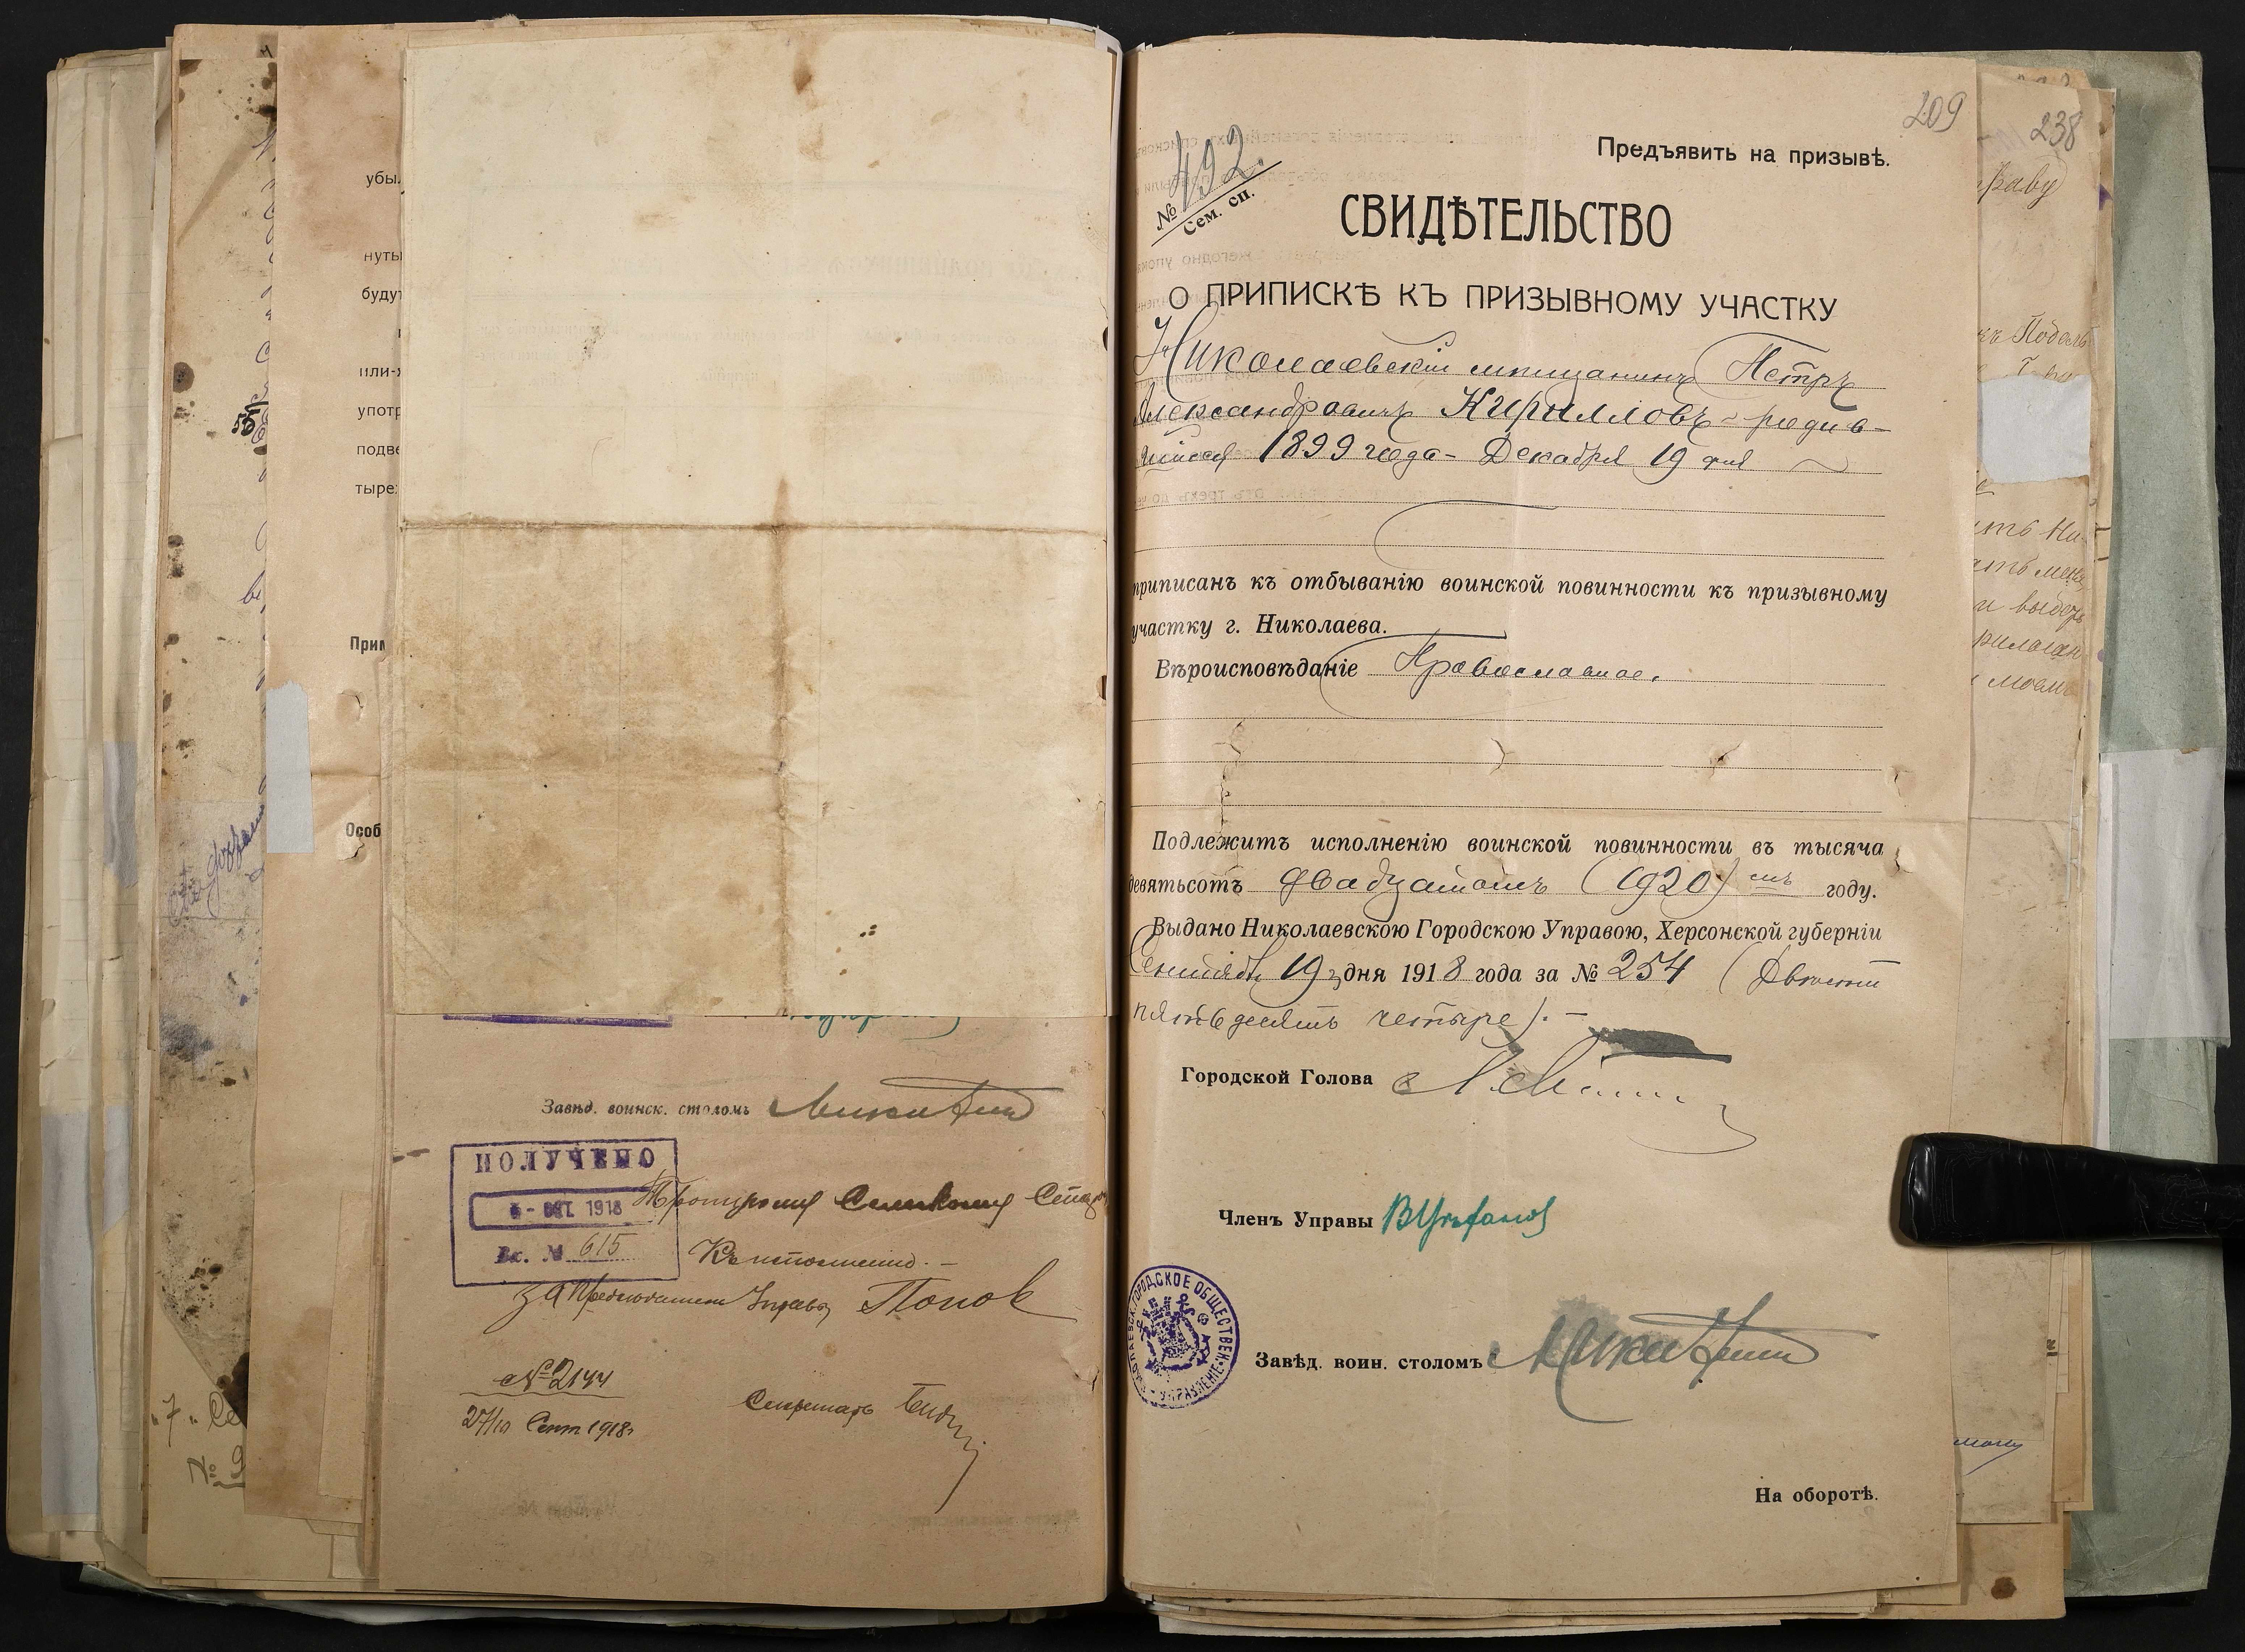 убы
нуты
буду
или-
употр
подве
тыре
Прим
Особ
55
"7" Се
№ 9
Завѣд. воинск. столомъ Микитин
ПОЛУЧЕНО
ОКТ. 1918
Вх. № 615
Къ исполненію. —
За Председателя Управы Попов
№ 2144
27/10 Сент 1918
Секретарь
209
238
Предъявить на призывѣ.
№ 492.
Сем. сп.
СВИДѢТЕЛЬСТВО
О ПРИПИСКѢ КЪ ПРИЗЫВНОМУ УЧАСТКУ
Николаевскій мѣщанинъ Петръ
Александровичъ Кирилловъ - родив-
шійся 1899 года - Декабря 19 дня
приписанъ къ отбыванію воинской повинности къ призывному
участку г. Николаева.
Вѣроисповѣданіе Православное.
Подлежитъ исполненію воинской повинности въ тысяча
девятьсотъ двадцатомъ (1920) омъ году.
Выдано Николаевскою Городскою Управою, Херсонской губерніи
Сентября 19 дня 1918 года за № 254 (Двѣсти
пятьдесятъ четыре). —
Городской Голова
Членъ Управы
НИКОЛАЕВСК. ГОРОДСКОЕ ОБЩЕСТВЕН. УПРАВЛЕНІЕ
Завѣд. воин. столомъ Микитин
На оборотѣ.